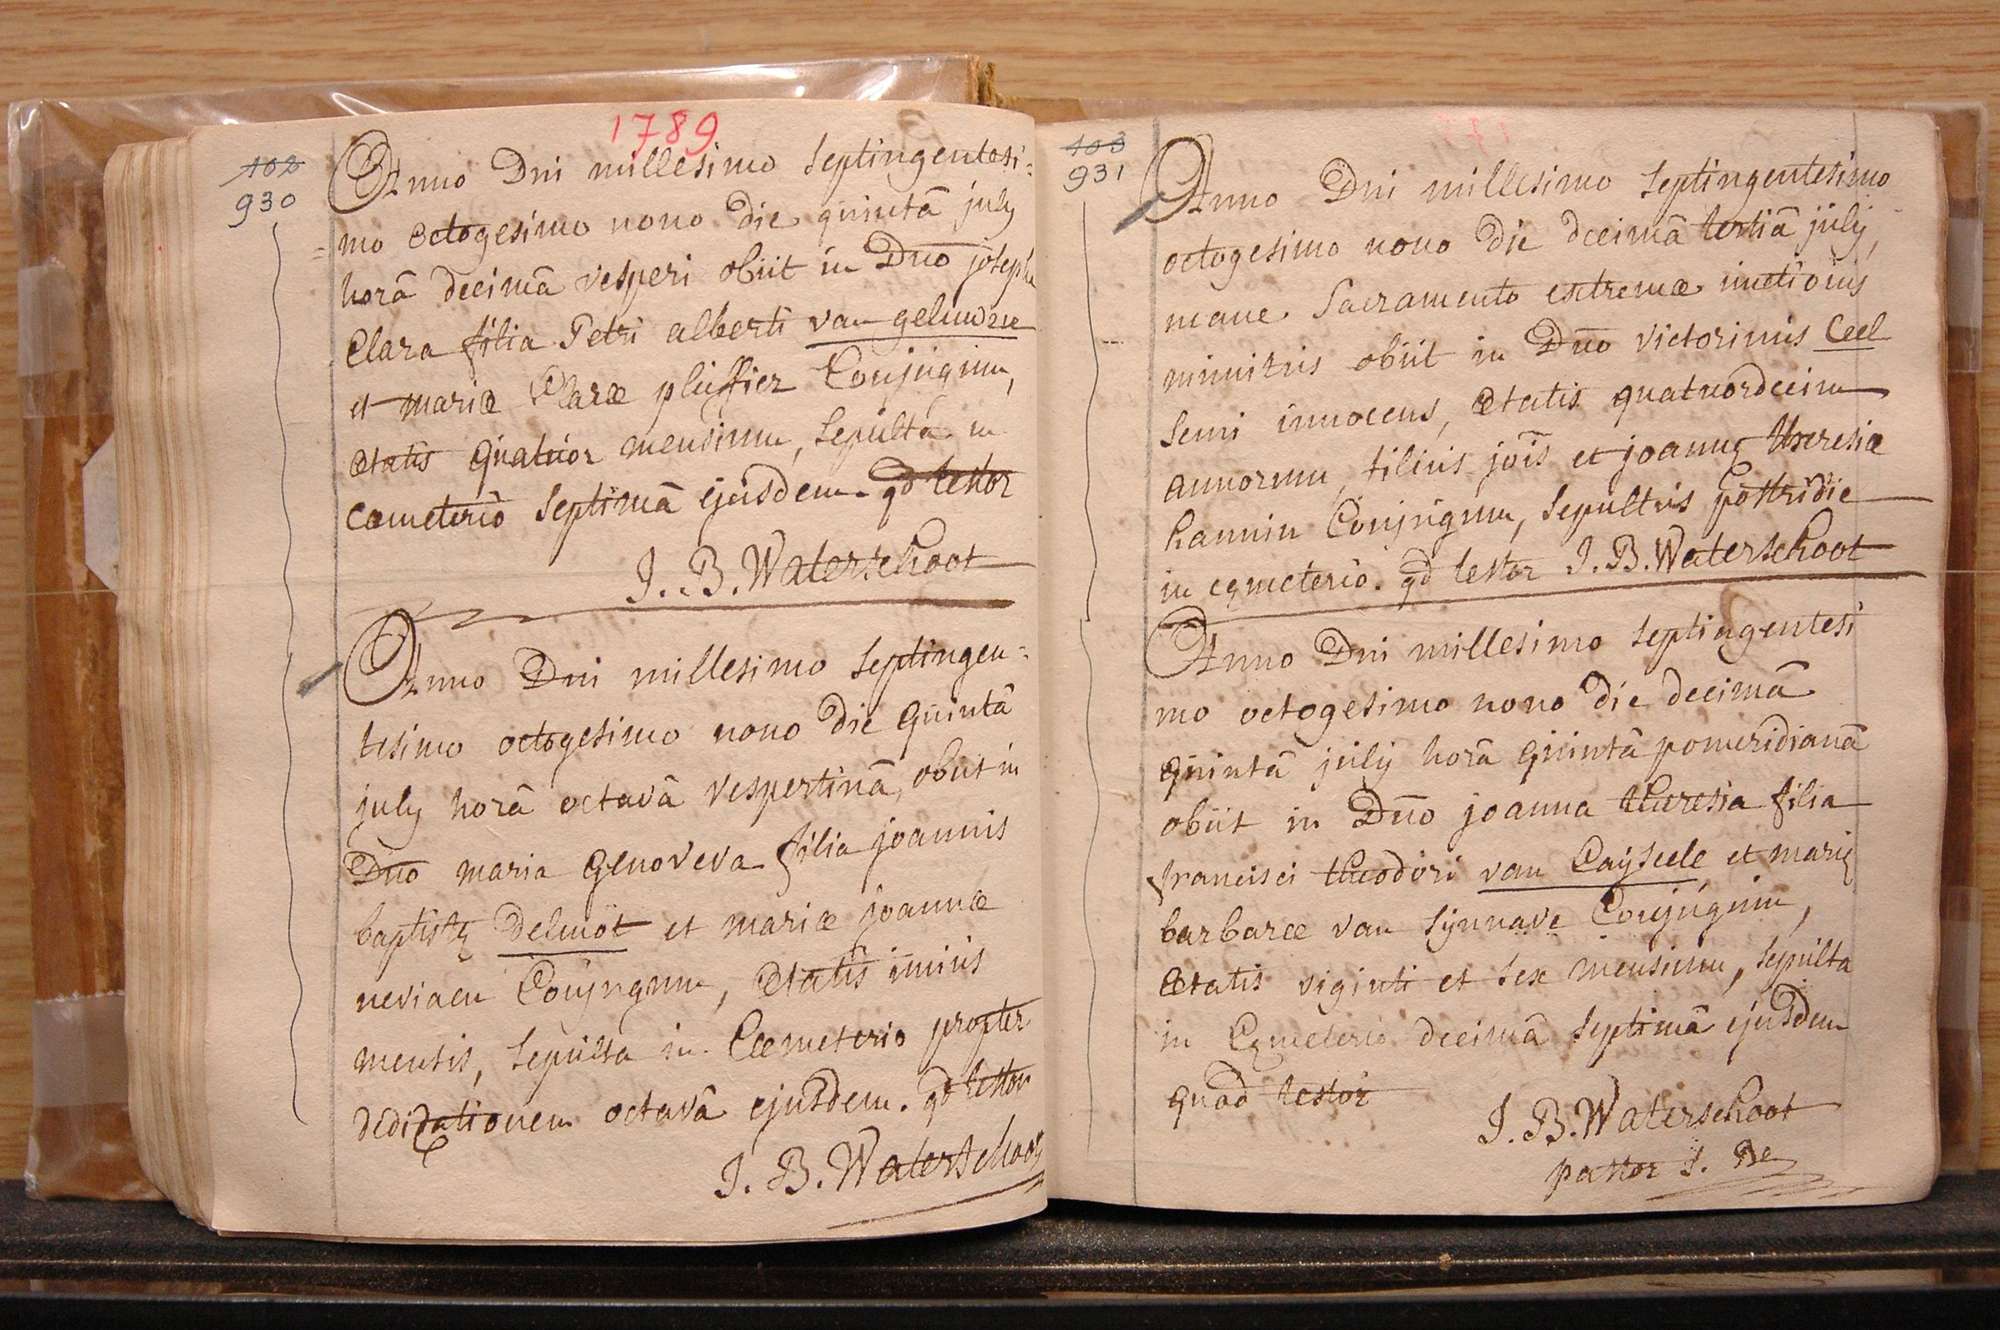 1789
102
930
Anno Dni millesimo septingentesi=
=mo octogesimo nono die quintâ july
horâ decimâ vesperi obiit in Dno josepha
Clara filia Petri alberti van geluwe
et mariæ Claræ pluffier Conjugum,
ætatis quatuor mensium, sepulta in
cœmeterio septimâ ejusdem. qd testor
J. B. Waterschoot
Anno Dni millesimo septingen=
tesimo octogesimo nono die quintâ
july horâ octavâ vespertinâ, obiit in
Dno maria genoveva filia joannis
baptistę Delmot et mariæ joannæ
neviaen Conjugum, ætatis unius
mensis, sepulta in Cœmeterio propter
dedicationem octavâ ejusdem. qd testor
J. B. Waterschoot
103
931
Anno Dni millesimo septingentesimo
octogesimo nono die decimâ tertiâ july,
mane sacramento extremæ unctionis
munitus obiit in Dno victorinus Ceel
semi innocens, ætatis quatuordecim
annorum, filius jois et joannę theresiæ
hannin Conjugum, sepultus postridie
in cęmeterio. qd testor J. B. Waterschoot
Anno Dni millesimo septingentesi
mo octogesimo nono die decimâ
quintâ july horâ quintâ pomeridianâ
obiit in Dno joanna theresia filia
francisci theodori van Cayseele et marię
barbaræ van synnave Conjugum,
ætatis viginti et sex mensium, sepulta
in Cęmeterio decimâ septimâ ejusdem
quod testor
J. B. Waterschoot
pastor J. Be